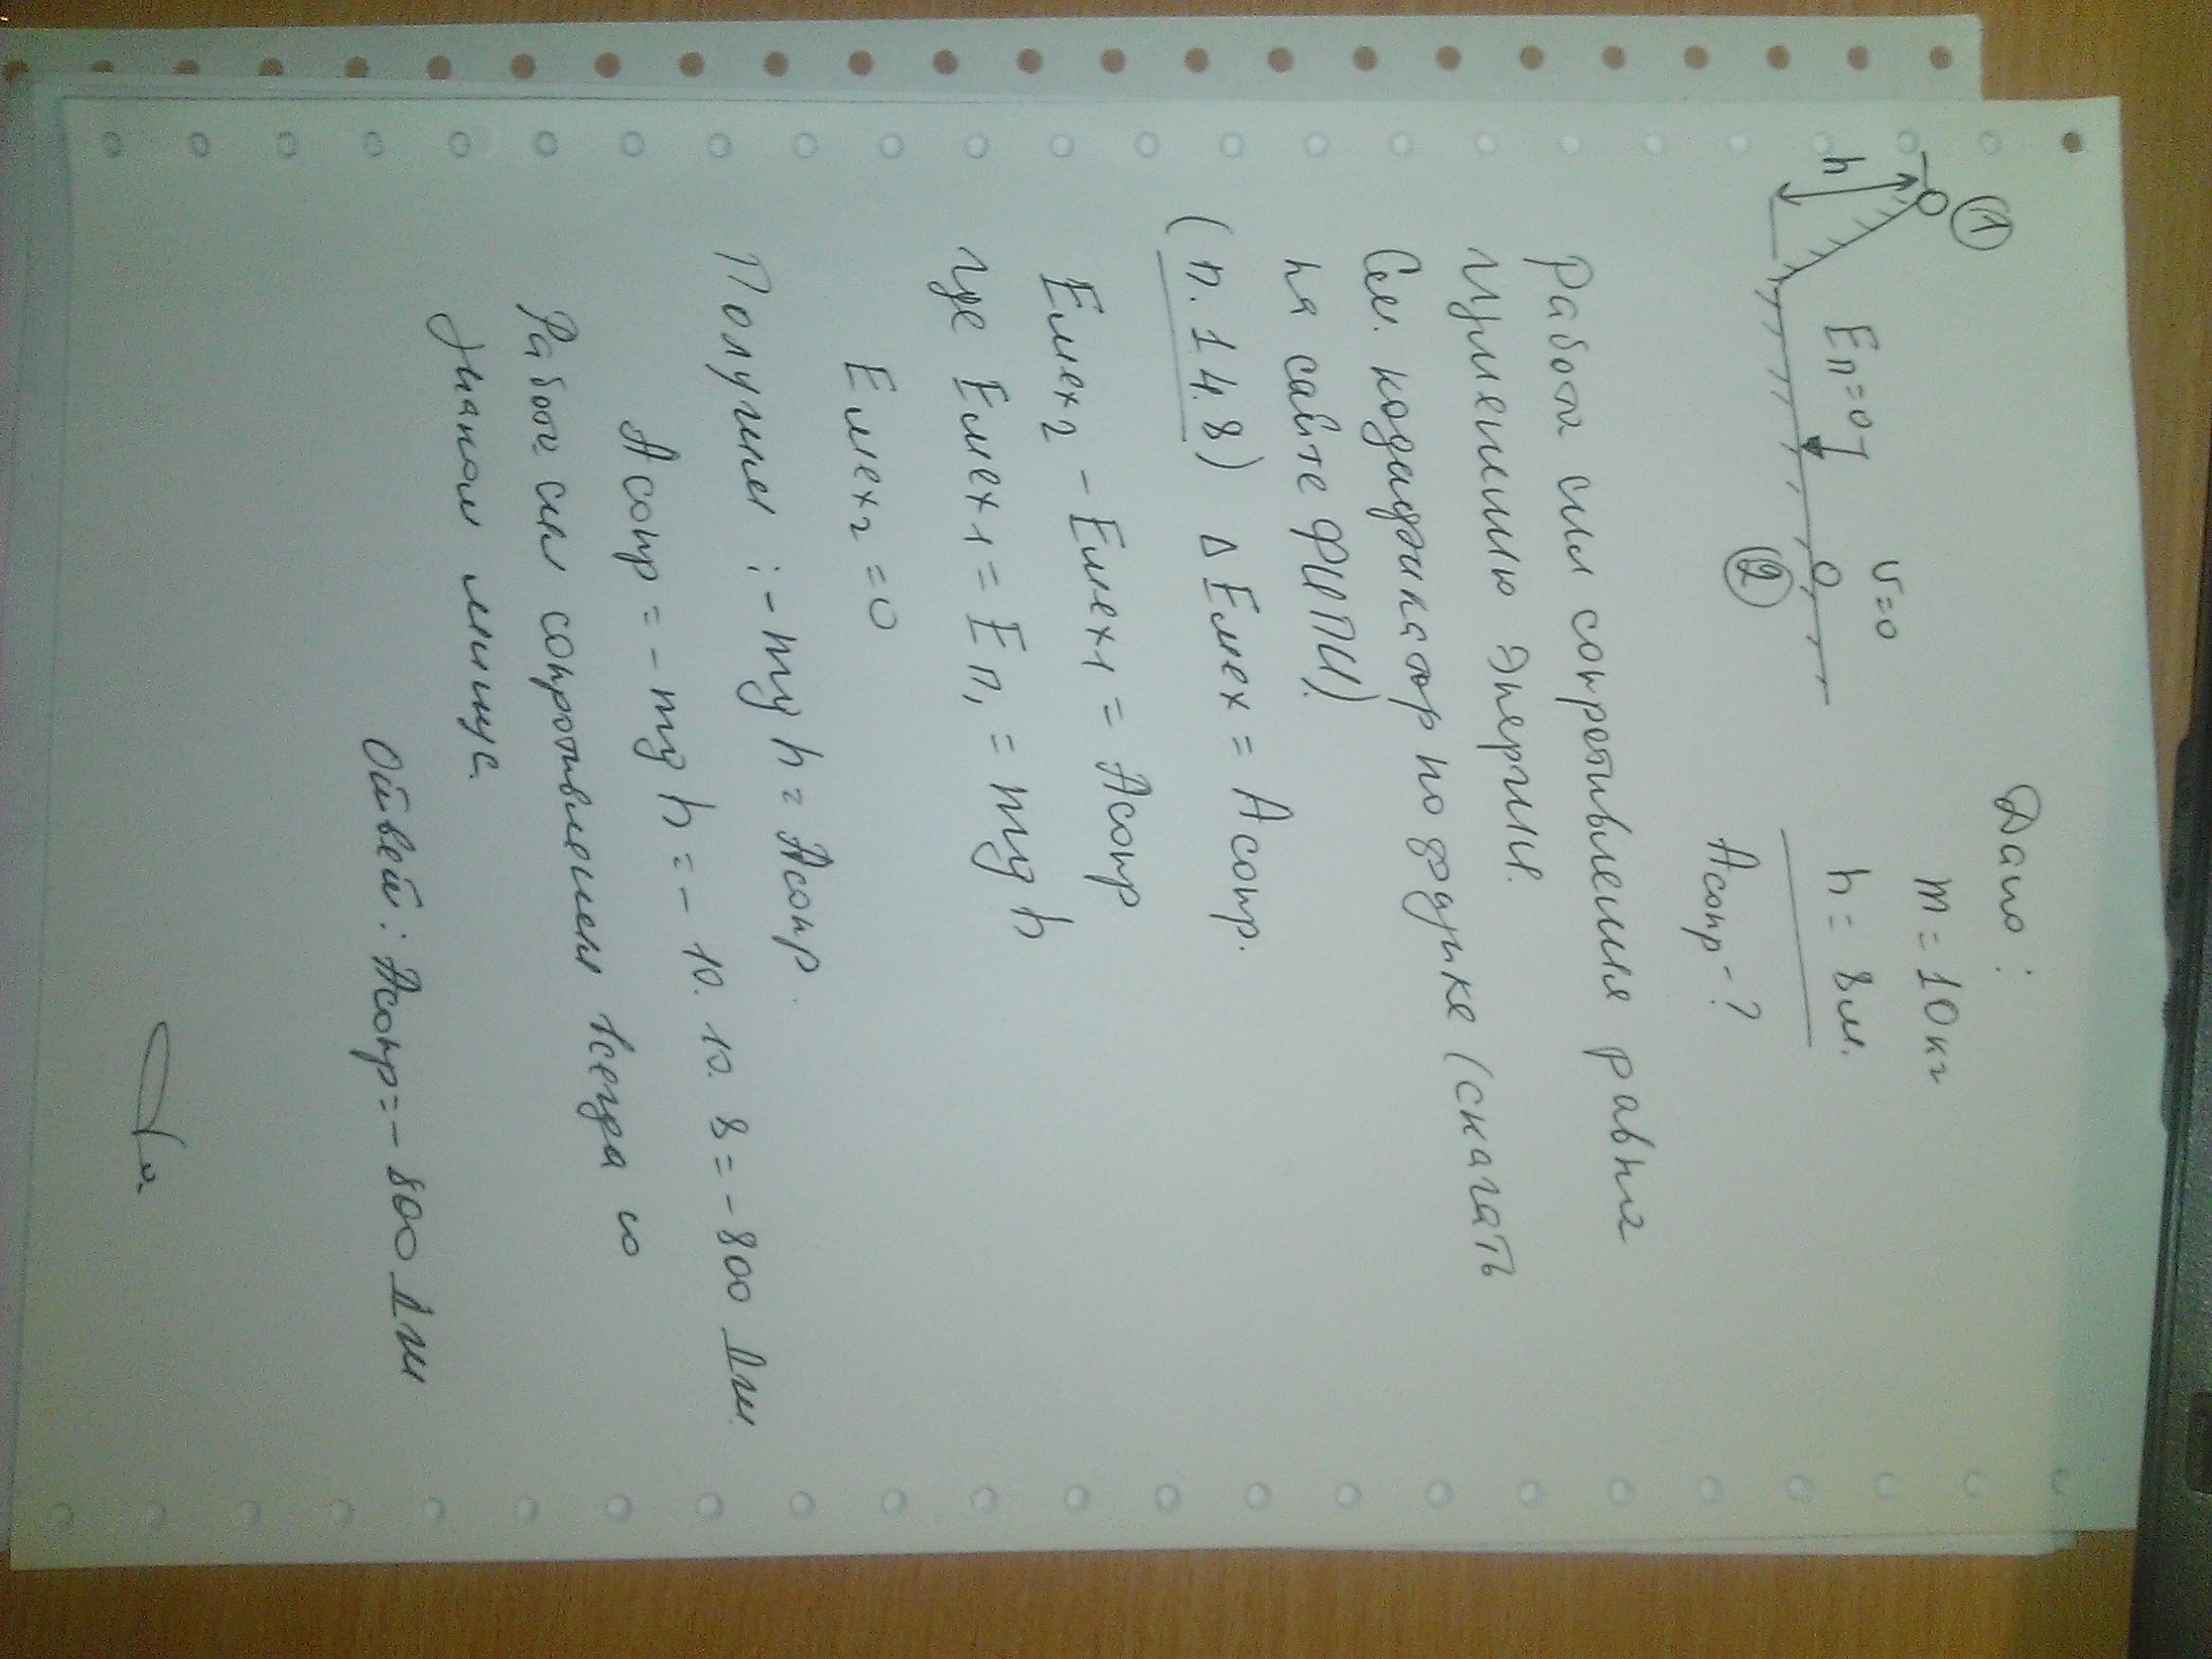 Дано:
m = 10 кг
h = 8 м.
Асопр - ?
①
h
Eп = 0
v = 0
②
Работа сил сопротивления равна
изменению энергии.
См. кодификатор по физике (скачать
на сайте ФИПИ)
(п. 1.4.8) Δ Eмех = Асопр.
Eмех2 - Eмех1 = Асопр
где Eмех1 = Eп1 = mgh
Eмех2 = 0
Получим: - mgh = Асопр.
Асопр = - mgh = - 10. 10. 8 = - 800 Дж
Работ сил сопротивления всегда со
знаком минус.
Ответ: Асопр = - 800 Дж